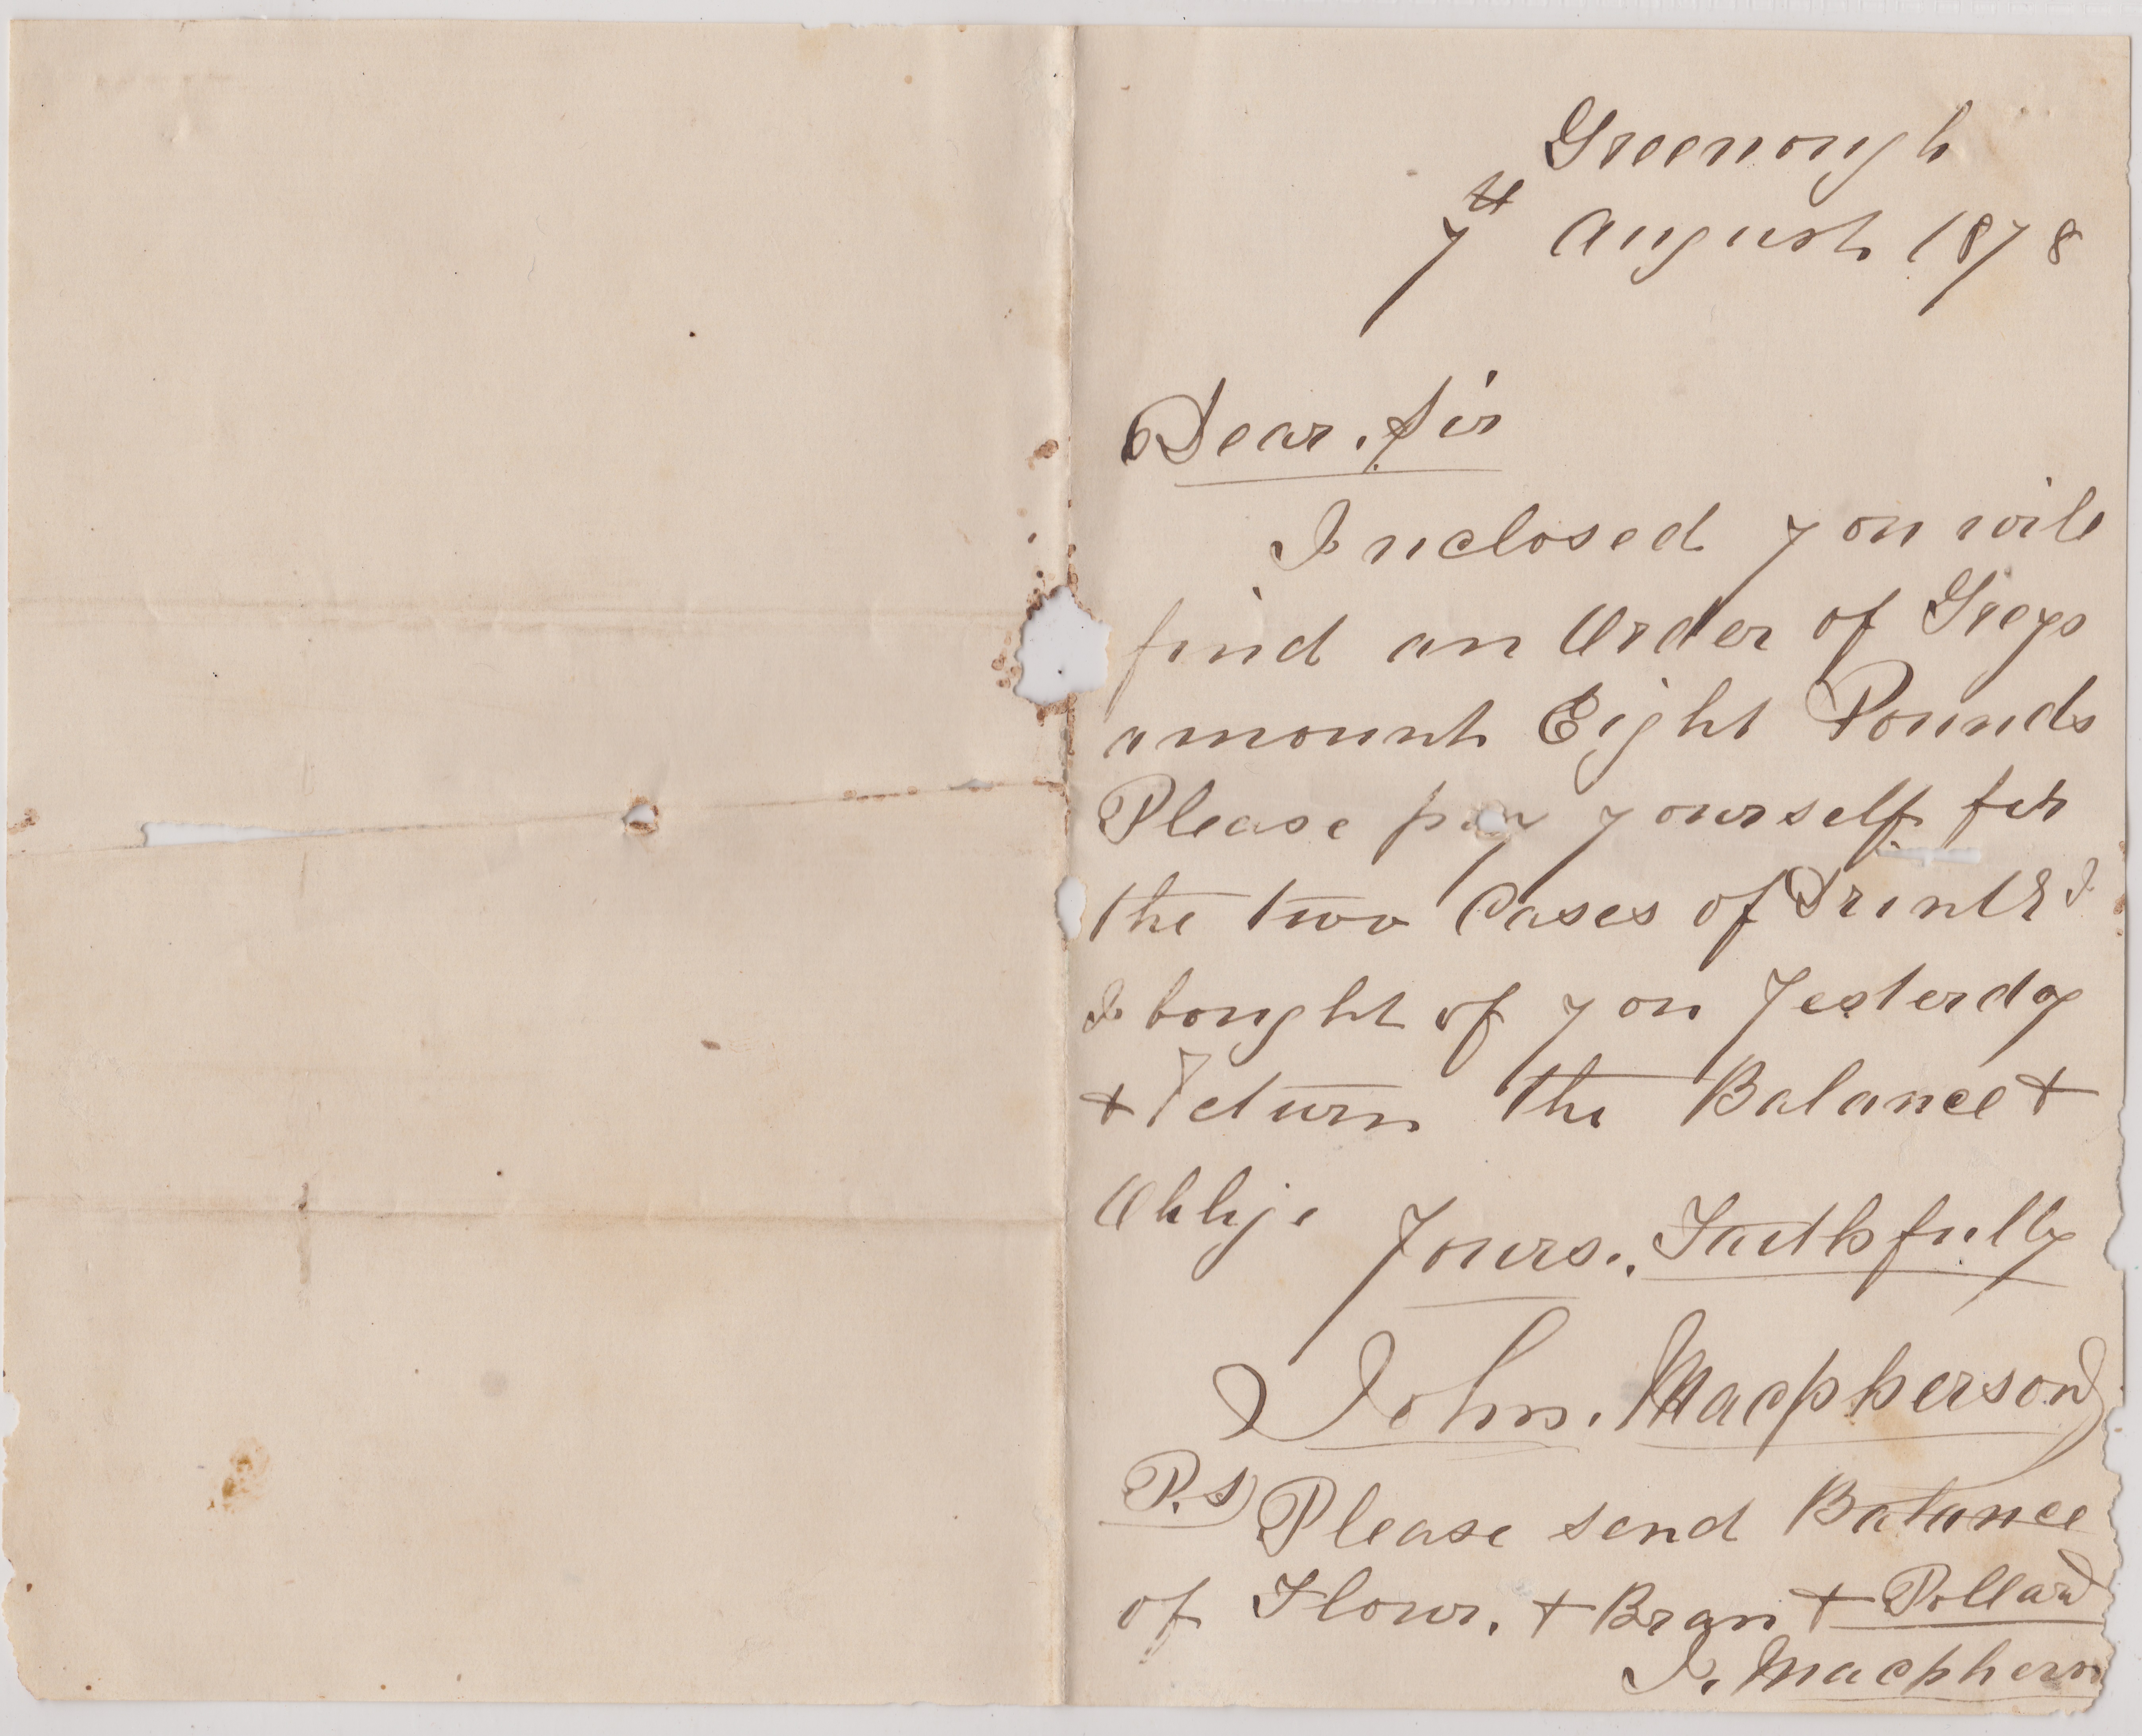 Greenough
7th August 1878
Dear. Sir
Inclosed you will
find an Order of Greys
amount Eight Pounds
Please pay yourself for
the two Cases of I
I bought of you Yesterday
+ Return the Balance +
Oblige
Yours., Faithfully
John. Macpherson
P.S) Please send Balance
of Flour. + Bran + Pollard
J. Macpherson